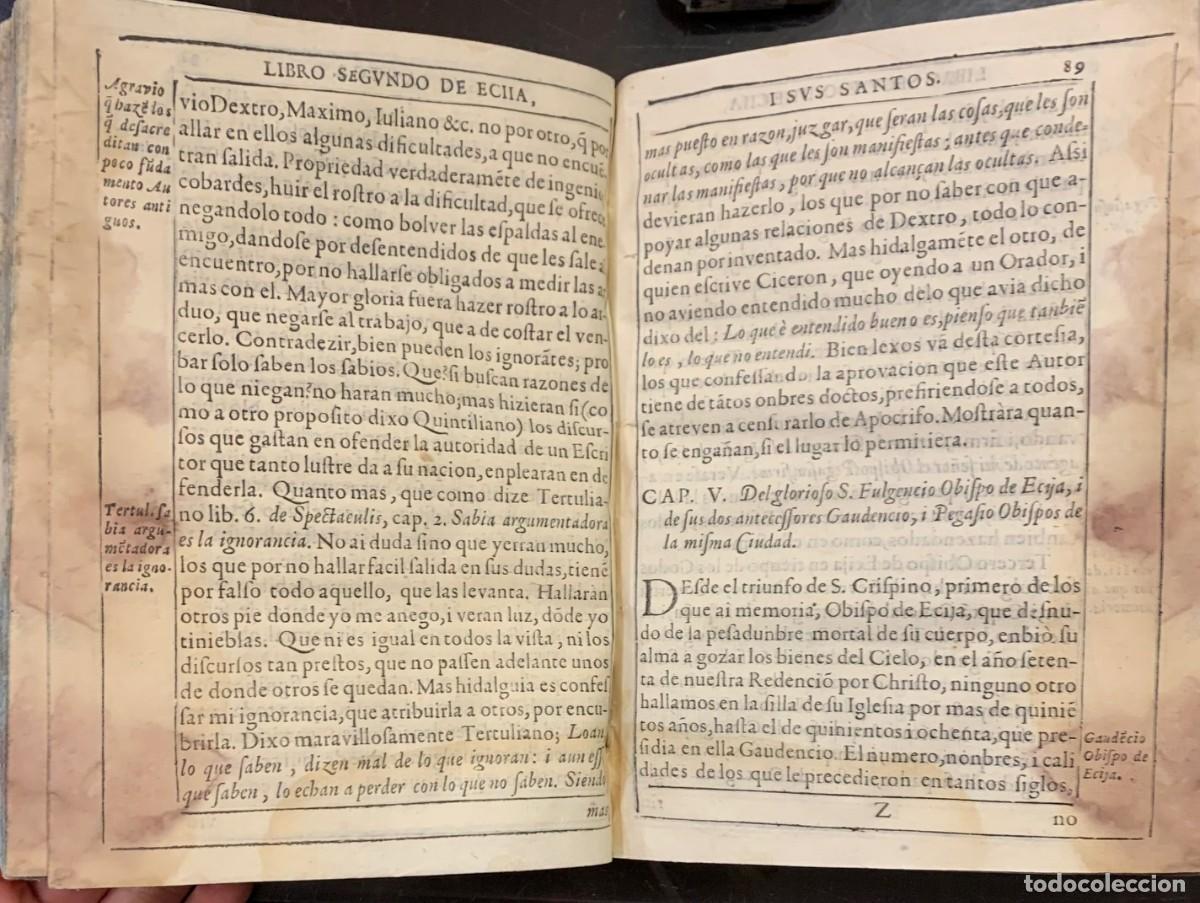 LIBRO SEGVNDO DE ECIIA,
Agravio
q̃ hazẽ los
q̃ desacre
ditan con
poco fũda
mento Au
tores anti
guos.
vio Dextro, Maximo, Iuliano &c. no por otro, q̃ por
allar en ellos algunas dificultades, a que no encuẽ
tran salida. Propriedad verdaderamẽte de ingenio
cobardes, huir el rostro a la dificultad, que se ofrece
negandolo todo : como bolver las espaldas al ene
migo, dandose por desentendidos de que les sale a
encuentro, por no hallarse obligados a medir las ar
mas con el. Mayor gloria fuera hazer rostro a lo ar
duo, que negarse al trabajo, que a de costar el ven-
cerlo. Contradezir, bien pueden los ignorãtes; pro
bar solo saben los sabios. Que? si buscan razones de
lo que niegan? no haràn mucho; mas hizieran si (co
mo a otro proposito dixo Quintiliano) los discur-
sos que gastan en ofender la autoridad de un Escri
tor que tanto lustre da a su nacion, enplearan en de
fenderla. Quanto mas, que como dize Tertulia-
Tertul. sa
bia argu-
mẽtadora
es la igno-
rancia.
no lib. 6. de Spectaculis, cap. 2. Sabia argumentadora
es la ignorancia. No ai duda sino que yerran mucho,
los que por no hallar facil salida en sus dudas, tienẽ
por falso todo aquello, que las levanta. Hallaràn
otros pie donde yo me anego, i veran luz, dõde yo
tinieblas. Que ni es igual en todos la vista, ni los
discursos tan prestos, que no passen adelante unos
de donde otros se quedan. Mas hidalguia es confes
sar mi ignorancia, que atribuirla a otros, por encu-
brirla. Dixo maravillosamente Tertuliano; Loan,
lo que saben, dizen mal de lo que ignoran: i aun ess
que saben, lo echan a perder con lo que no saben. Siendo
mas
I SVS SANTOS.
89
mas puesto en razon, juzgar, que seran las cosas, que les son
ocultas, como las que les son manifiestas; antes que conde-
nar las manifiestas, por que no alcançan las ocultas. Assi
devieran hazerlo, los que por no saber con que a-
poyar algunas relaciones de Dextro, todo lo con-
denan por inventado. Mas hidalgamẽte el otro, de
quien escrive Ciceron, que oyendo a un Orador, i
no aviendo entendido mucho de lo que avia dicho
dixo del: Lo que è entendido bueno es, pienso que tanbiẽ
lo es, lo que no entendi. Bien lexos và desta cortesia,
los que confessando la aprovacion que este Autor
tiene de tãtos onbres doctos, prefiriendose a todos,
se atreven a censurarlo de Apocrifo. Mostràra quan-
to se engañan, si el lugar lo permitiera.
CAP. V. Del glorioso S. Fulgencio Obispo de Ecija, i
de sus dos antecessores Gaudencio, i Pegasio Obispos de
la misma Ciudad.
DEsde el triunfo de S. Crispino, primero de los
que ai memoria, Obispo de Ecija, que desnu-
do de la pesadunbre mortal de su cuerpo, enbiò su
alma a gozar los bienes del Cielo, en el año seten-
ta de nuestra Redenciõ por Christo, ninguno otro
hallamos en la silla de su Iglesia por mas de quiniẽ
tos años, hasta el de quinientos i ochenta, que pre-
sidia en ella Gaudencio. El numero, nonbres, i cali
dades de los que le precedieron en tantos siglos,
Gaudẽcio
Obispo de
Ecija.
Z
no
todocoleccion